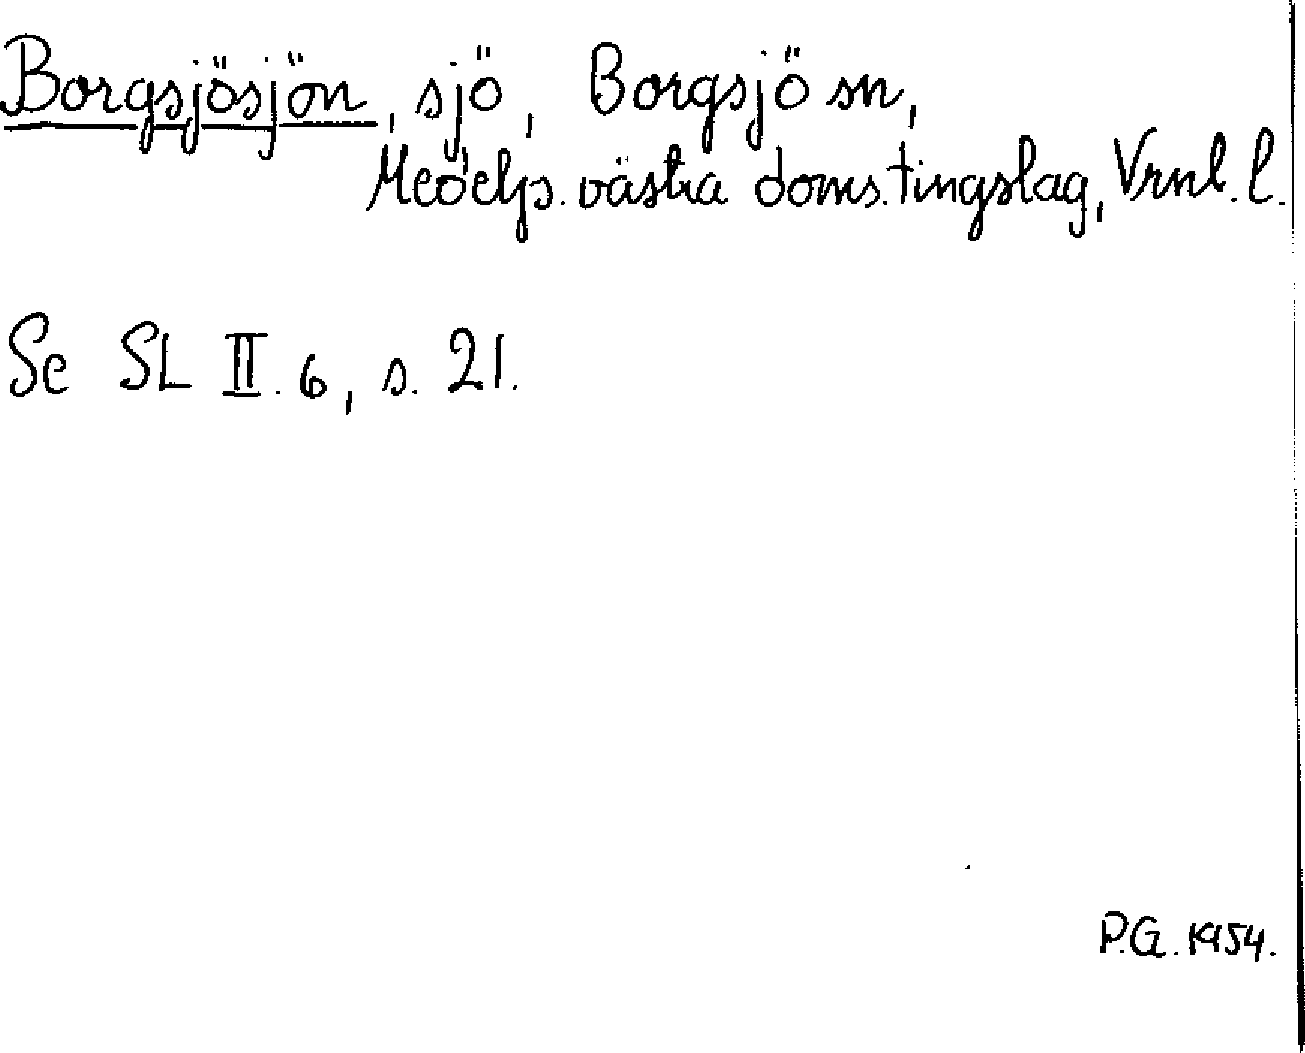 Borgsjösjön, sjö, Borgsjö sn,
Medelp. västra doms. tingslag, Vrnl. l.
Se SL II. 6, s. 21.
P.G. 1954.